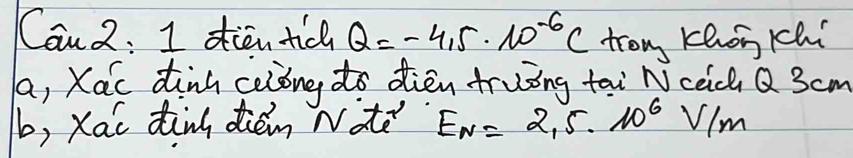 Câu 2: 1 điện tích Q = -4,5 . 10⁻⁶ C trong không khí
a, Xác định cường độ điện trường tại N cách Q 3cm
b, Xác định điểm N để E_N = 2,5. 10⁶ V/m